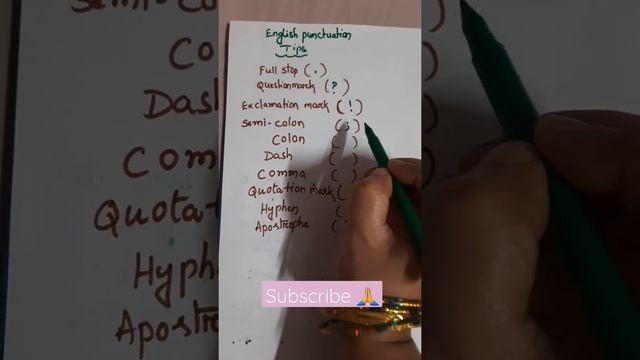 English punctuation
Tips
Full stop (.)
Question marck (?)
Exclamation marck (!)
Semi-colon (;)
Colon ( )
Dash ( )
Comma ( )
Quotation marck (
Hyphen (
Apostrophe (
Subscribe 🙏